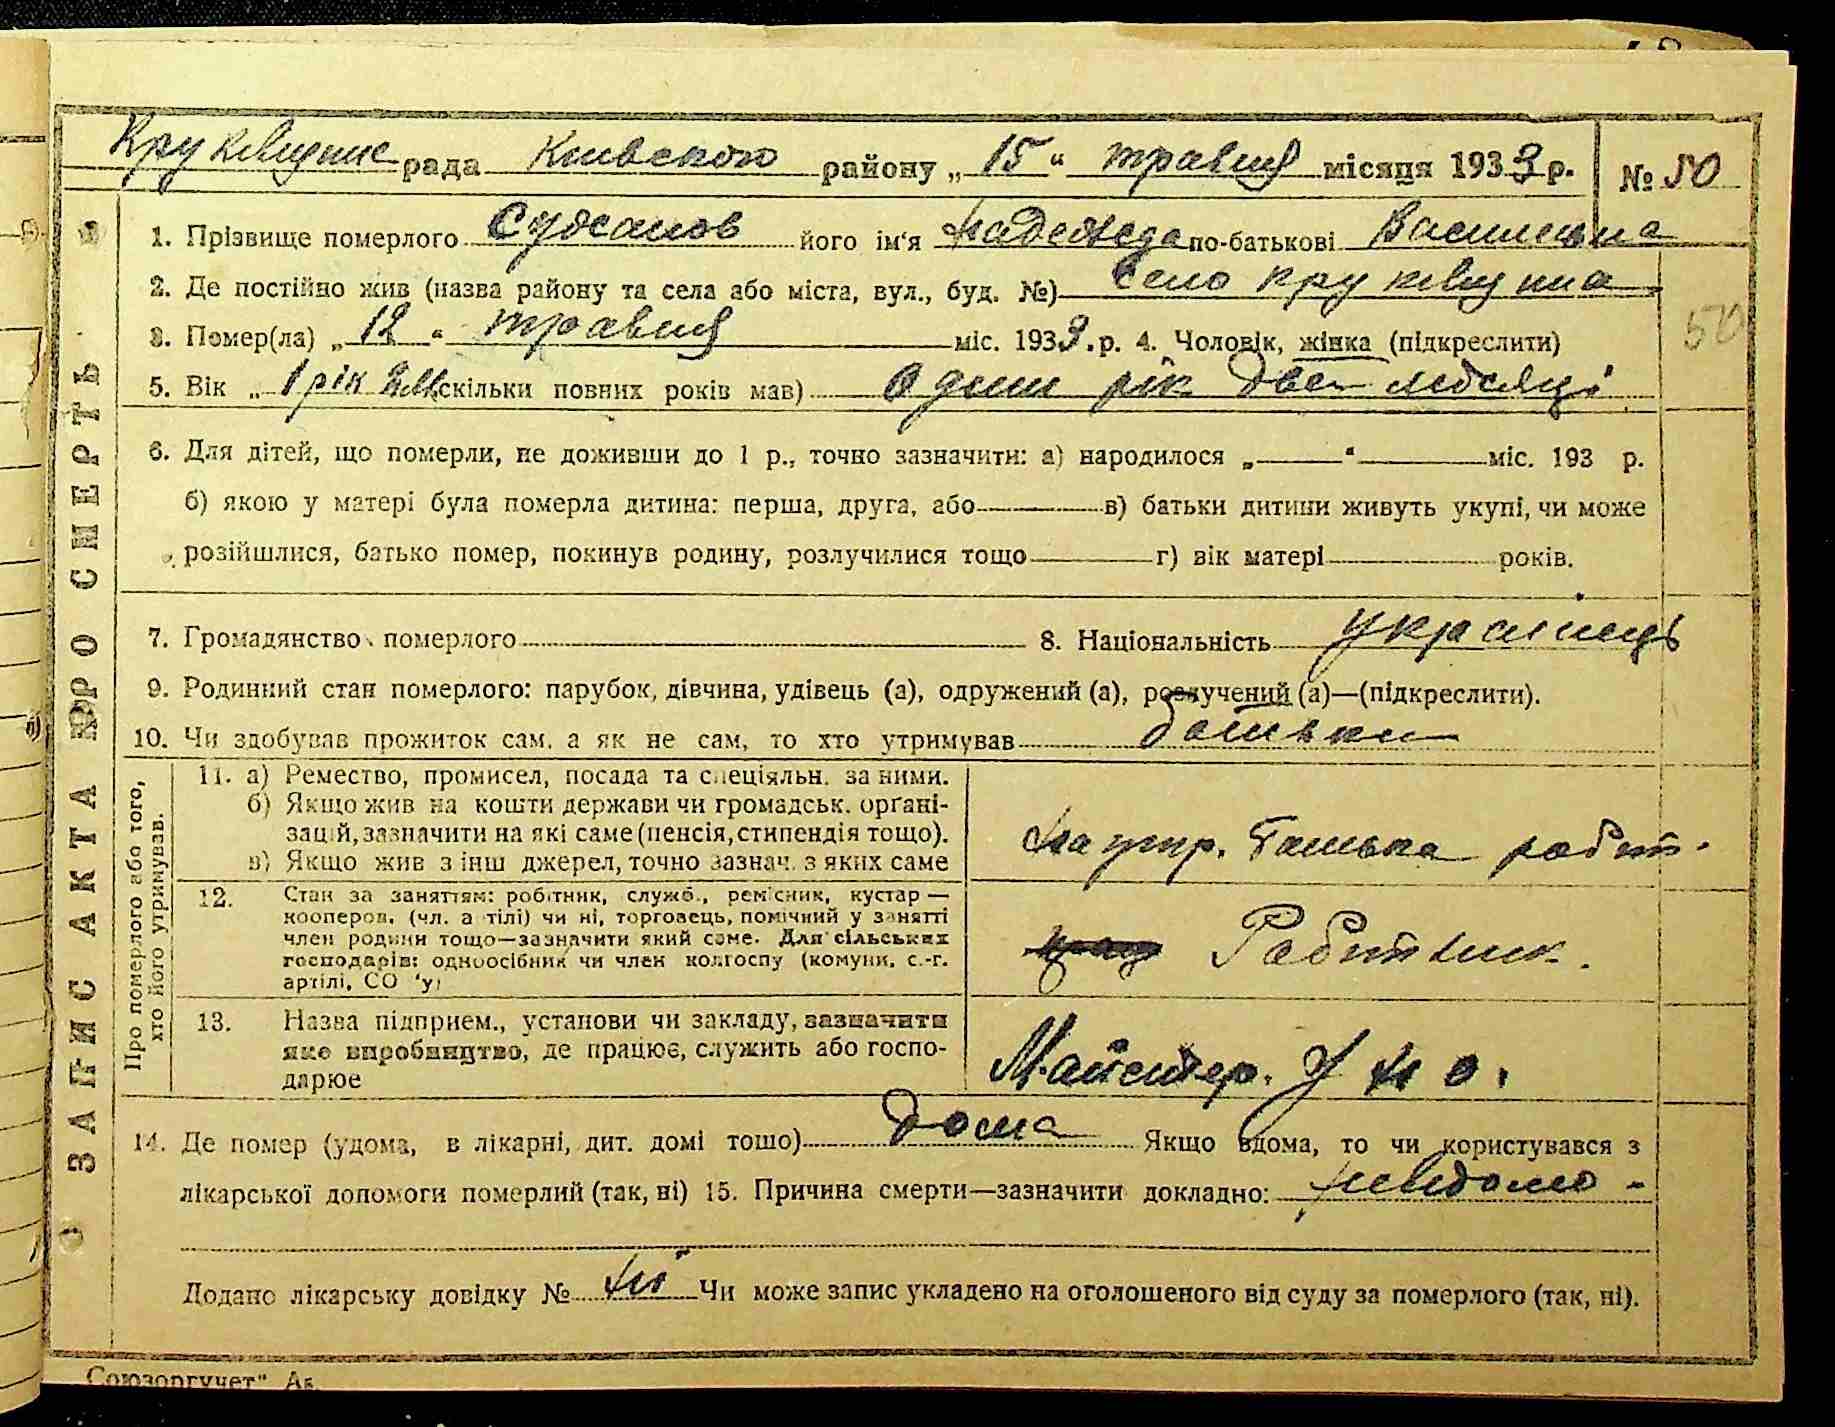 Круквщинс рада Киівского району „15“ травня місяця 1933 р. № 50
1. Прізвище померлого його ім'я Надежда по-батькові Василівна
2. Де постійно жив (назва району та села або міста, вул., буд. №) село Круквщина
3. Помер(ла) „12“ травня міс. 1933. р. 4. Чоловік, жінка (підкреслити)
5. Вік „1 рік 2 м. скільки повних років мав) один рік две місяці
50
6. Для дітей, що померли, не доживши до 1 р., точно зазначити: а) народилося „ “ міс. 193 р.
б) якою у матері була померла дитина: перша, друга, або в) батьки дитини живуть укупі, чи може
розійшлися, батько помер, покинув родину, розлучилися тощо г) вік матері років.
7. Громадянство померлого 8. Національність українець
9. Родинний стан померлого: парубок, дівчина, удівець (а), одружений (а), розлучений (а)—(підкреслити).
10. Чи здобував прожиток сам, а як не сам, то хто утримував батьки
11. а) Ремество, промисел, посада та спеціяльн. за ними.
б) Якщо жив на кошти держави чи громадськ. орґані-
зацій, зазначити на які саме (пенсія, стипендія тощо).
в) Якщо жив з інш джерел, точно зазнач. з яких саме
На утр. батька робіт.
12. Стан за заняттям: робітник, служб., ремісник, кустар —
кооперов. (чл. а тілі) чи ні, торговець, помічний у занятті
член родини тощо—зазначити який саме. Для сільських
господарів: одноосібник чи член колгоспу (комуни, с.-г.
артілі, СО 'у)
Робітник.
13. Назва підприєм., установи чи закладу, зазначити
яке виробництво, де працює, служить або госпо-
дарює
Майстер.
14. Де помер (удома, в лікарні, дит. домі тощо) дома Якщо вдома, то чи користувався з
лікарської допомоги померлий (так, ні) 15. Причина смерти—зазначити докладно: невідомо -
Додано лікарську довідку № ні Чи може запис укладено на оголошеного від суду за померлого (так, ні).
ЗАПИС АКТА ПРО СМЕРТЬ
Про померлого або того,
хто його утримував.
Союзоргучет"